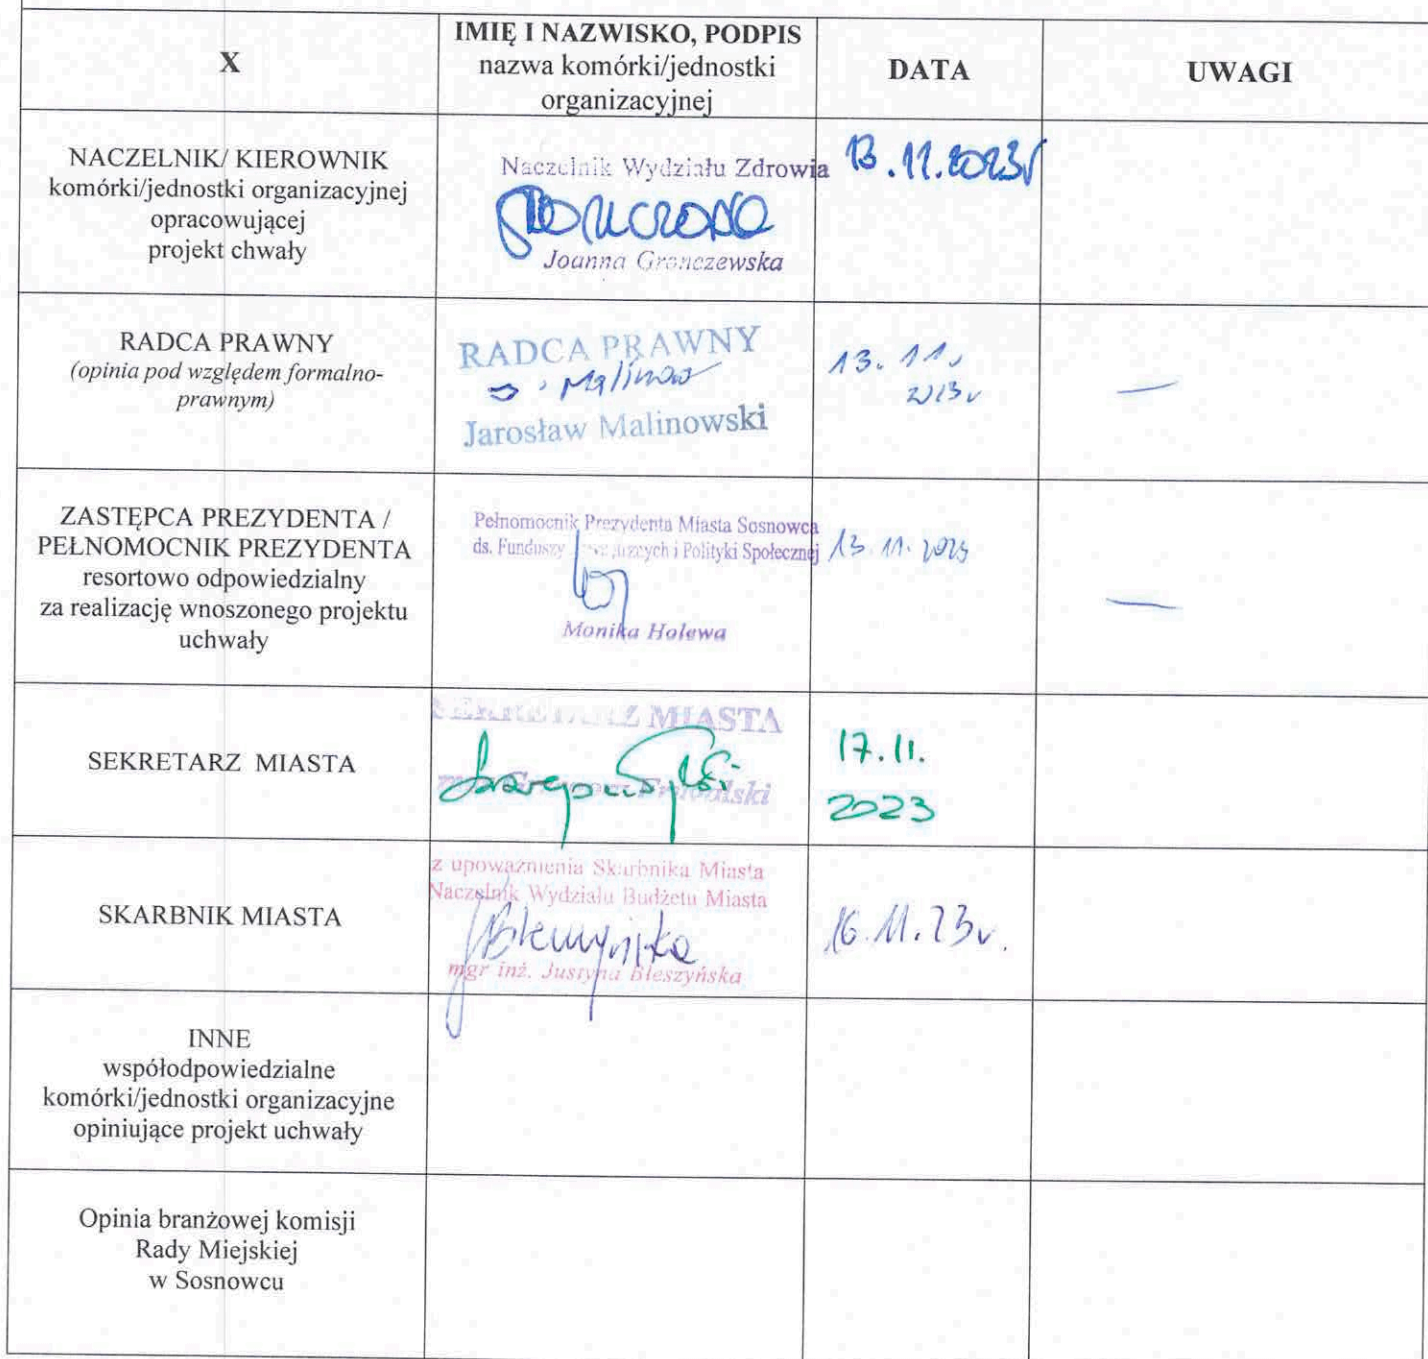 X
IMIĘ I NAZWISKO, PODPIS
nazwa komórki/jednostki
organizacyjnej
DATA
UWAGI
NACZELNIK/ KIEROWNIK
komórki/jednostki organizacyjnej
opracowującej
projekt chwały
Naczelnik Wydziału Zdrowia
Joanna Gronczewska
13.11.2023r
RADCA PRAWNY
(opinia pod względem formalno-
prawnym)
RADCA PRAWNY
Jarosław Malinowski
13.11.
2023r
—
ZASTĘPCA PREZYDENTA /
PEŁNOMOCNIK PREZYDENTA
resortowo odpowiedzialny
za realizację wnoszonego projektu
uchwały
Pełnomocnik Prezydenta Miasta Sosnowca
ds. Funduszy i Polityki Społecznej
Monika Holewa
13.11.2023
—
SEKRETARZ MIASTA
SEKRETARZ MIASTA
17.11.
2023
SKARBNIK MIASTA
z upoważnienia Skarbnika Miasta
Naczelnik Wydziału Budżetu Miasta
mgr inż. Justyna Błeszyńska
16.11.23r.
INNE
współodpowiedzialne
komórki/jednostki organizacyjne
opiniujące projekt uchwały
Opinia branżowej komisji
Rady Miejskiej
w Sosnowcu